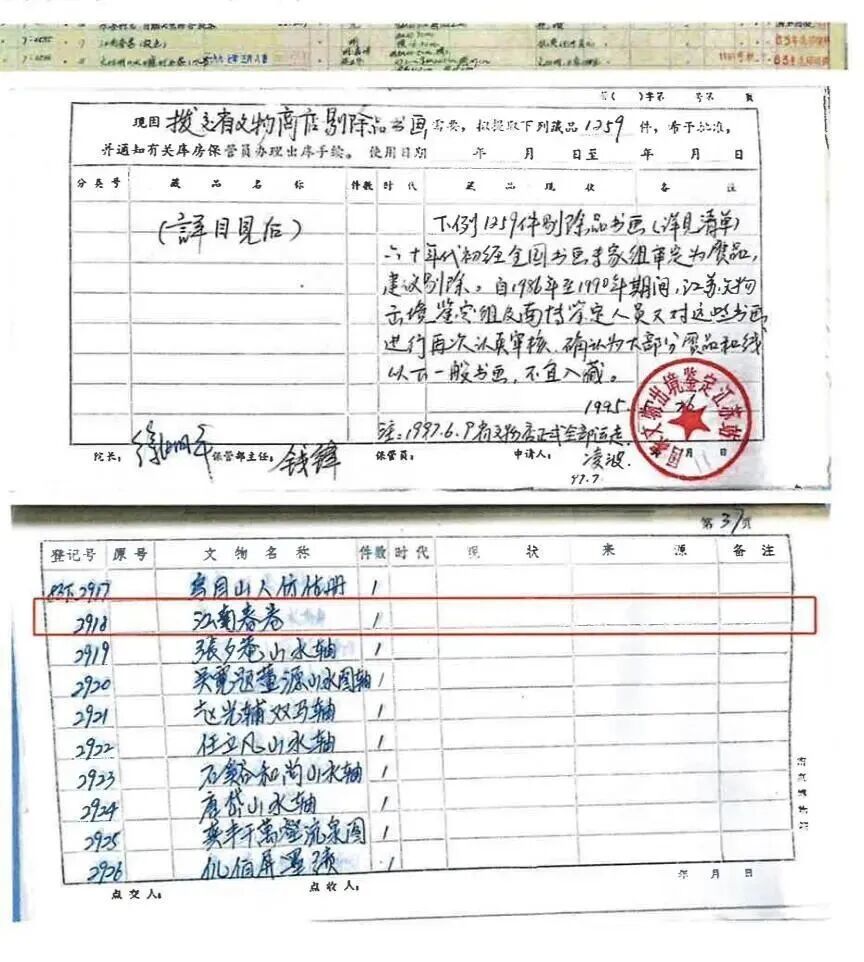 7:0695 江南春卷（设色）
第（ ）字第 号第 页
现因拨交省文物商店剔除品书画需要，拟提取下列藏品1259件，希予批准，
并通知有关库房保管员办理出库手续。使用日期 年 月 日至 年 月 日
分类号 藏品名称 件数 时代 藏品现状 备注
（詳目見后）
下例1259件剔除品书画（详见清单）
六十年代初经全国书画专家组审定为赝品，
建议剔除。自1986年至1990年期间，江苏文物
出境鉴定组及南博鉴定人员又对这些书画
进行再次认真审核，确认为大部分赝品和线
以下一般书画，不宜入藏。
1995. 26
注：1997.6.9省文物店正式全部运走
院长： 徐湖平 保管部主任： 钱锋 保管员： 申请人： 凌波
97.7.
国家文物出境鉴定江苏站
月 日
第37页
登记号 原号 文物名称 件数 时代 现状 来源 备注
2917 仿古册 1
2918 江南春卷 1
2919 張夕菴山水轴 1
2920 吴寬题董源山水图轴 1
2921 赵光辅双马轴 1
2922 任立凡山水轴 1
2923 石溪和尚山水轴 1
2924 唐岱山水轴 1
2925 千萬壑流泉图 1
2926 伯屏墨 1
南京博物院
点交人： 点收人： 年 月 日